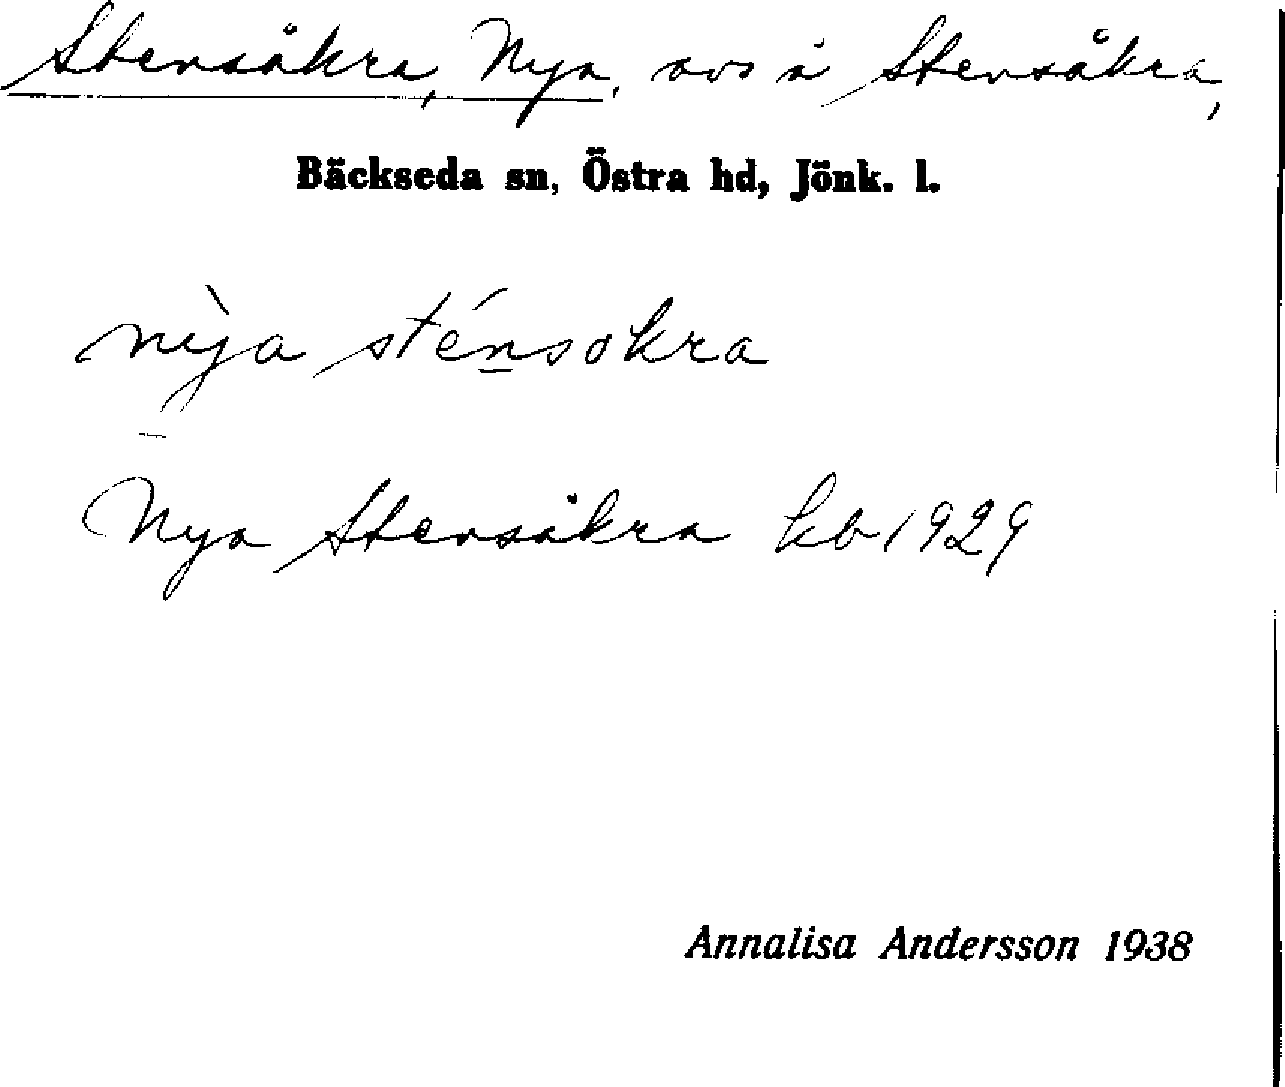 Stensåkra, Nya, avs å Stensåkra,
Bäckseda sn, Östra hd, Jönk. l.
nỳa sténsokra
Nya Stensåkra kb 1929
Annalisa Andersson 1938